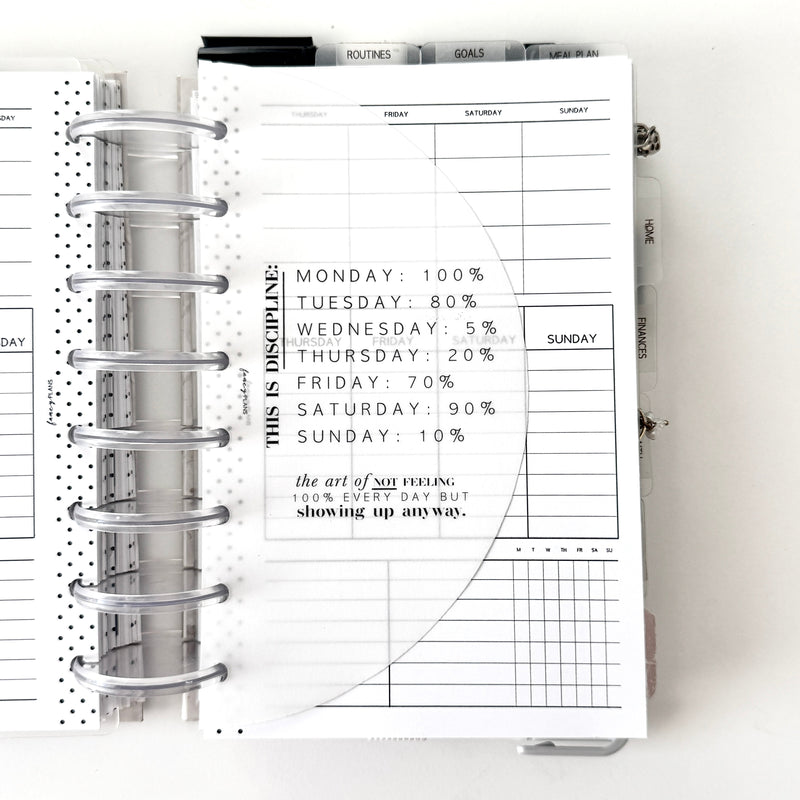 ROUTINES
GOALS
MEAL PLAN
THURSDAY
FRIDAY
SATURDAY
SUNDAY
THIS IS DISCIPLINE:
MONDAY: 100%
TUESDAY: 80%
WEDNESDAY: 5%
THURSDAY: 20%
FRIDAY: 70%
SATURDAY: 90%
SUNDAY: 10%
the art of NOT FEELING
100% EVERY DAY BUT
showing up anyway.
THURSDAY
FRIDAY
SATURDAY
SUNDAY
M T W TH FR SA SU
HOME
FINANCES
fancyPLANS
fancyPLANS